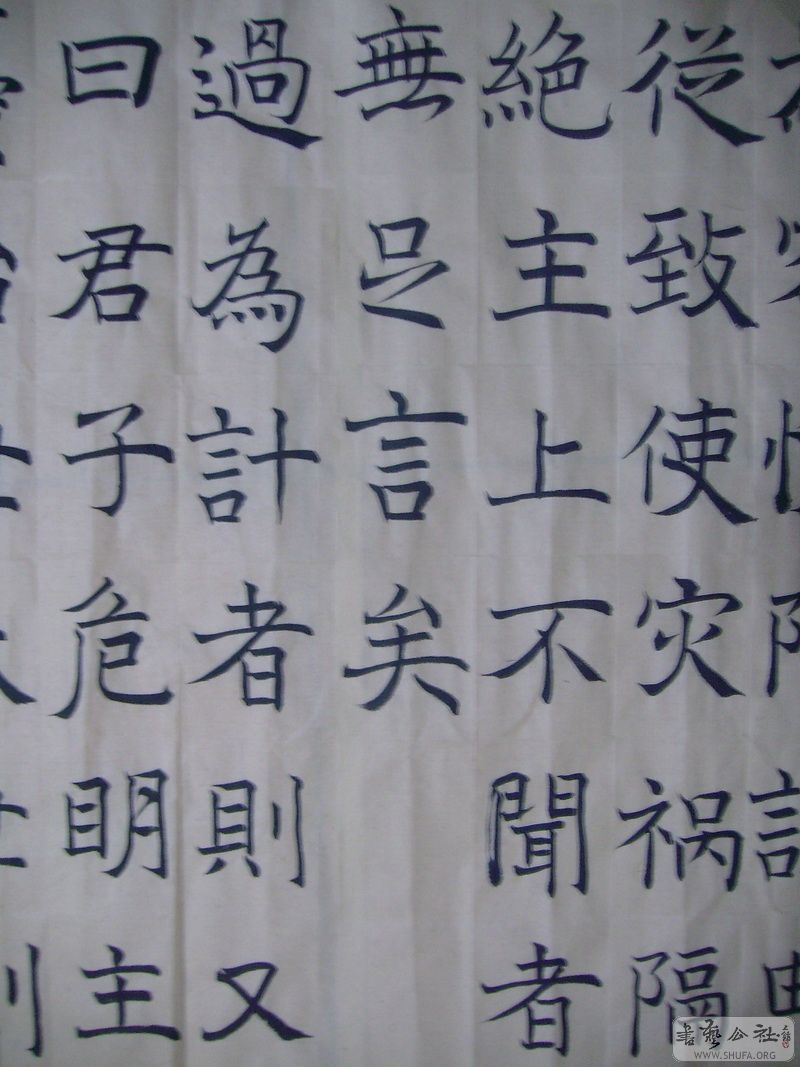 従致使灾祸隔
絶主上不聞者
無足言矣
過為計者則又
曰君子危明主
書藝公社
WWW.SHUFA.ORG